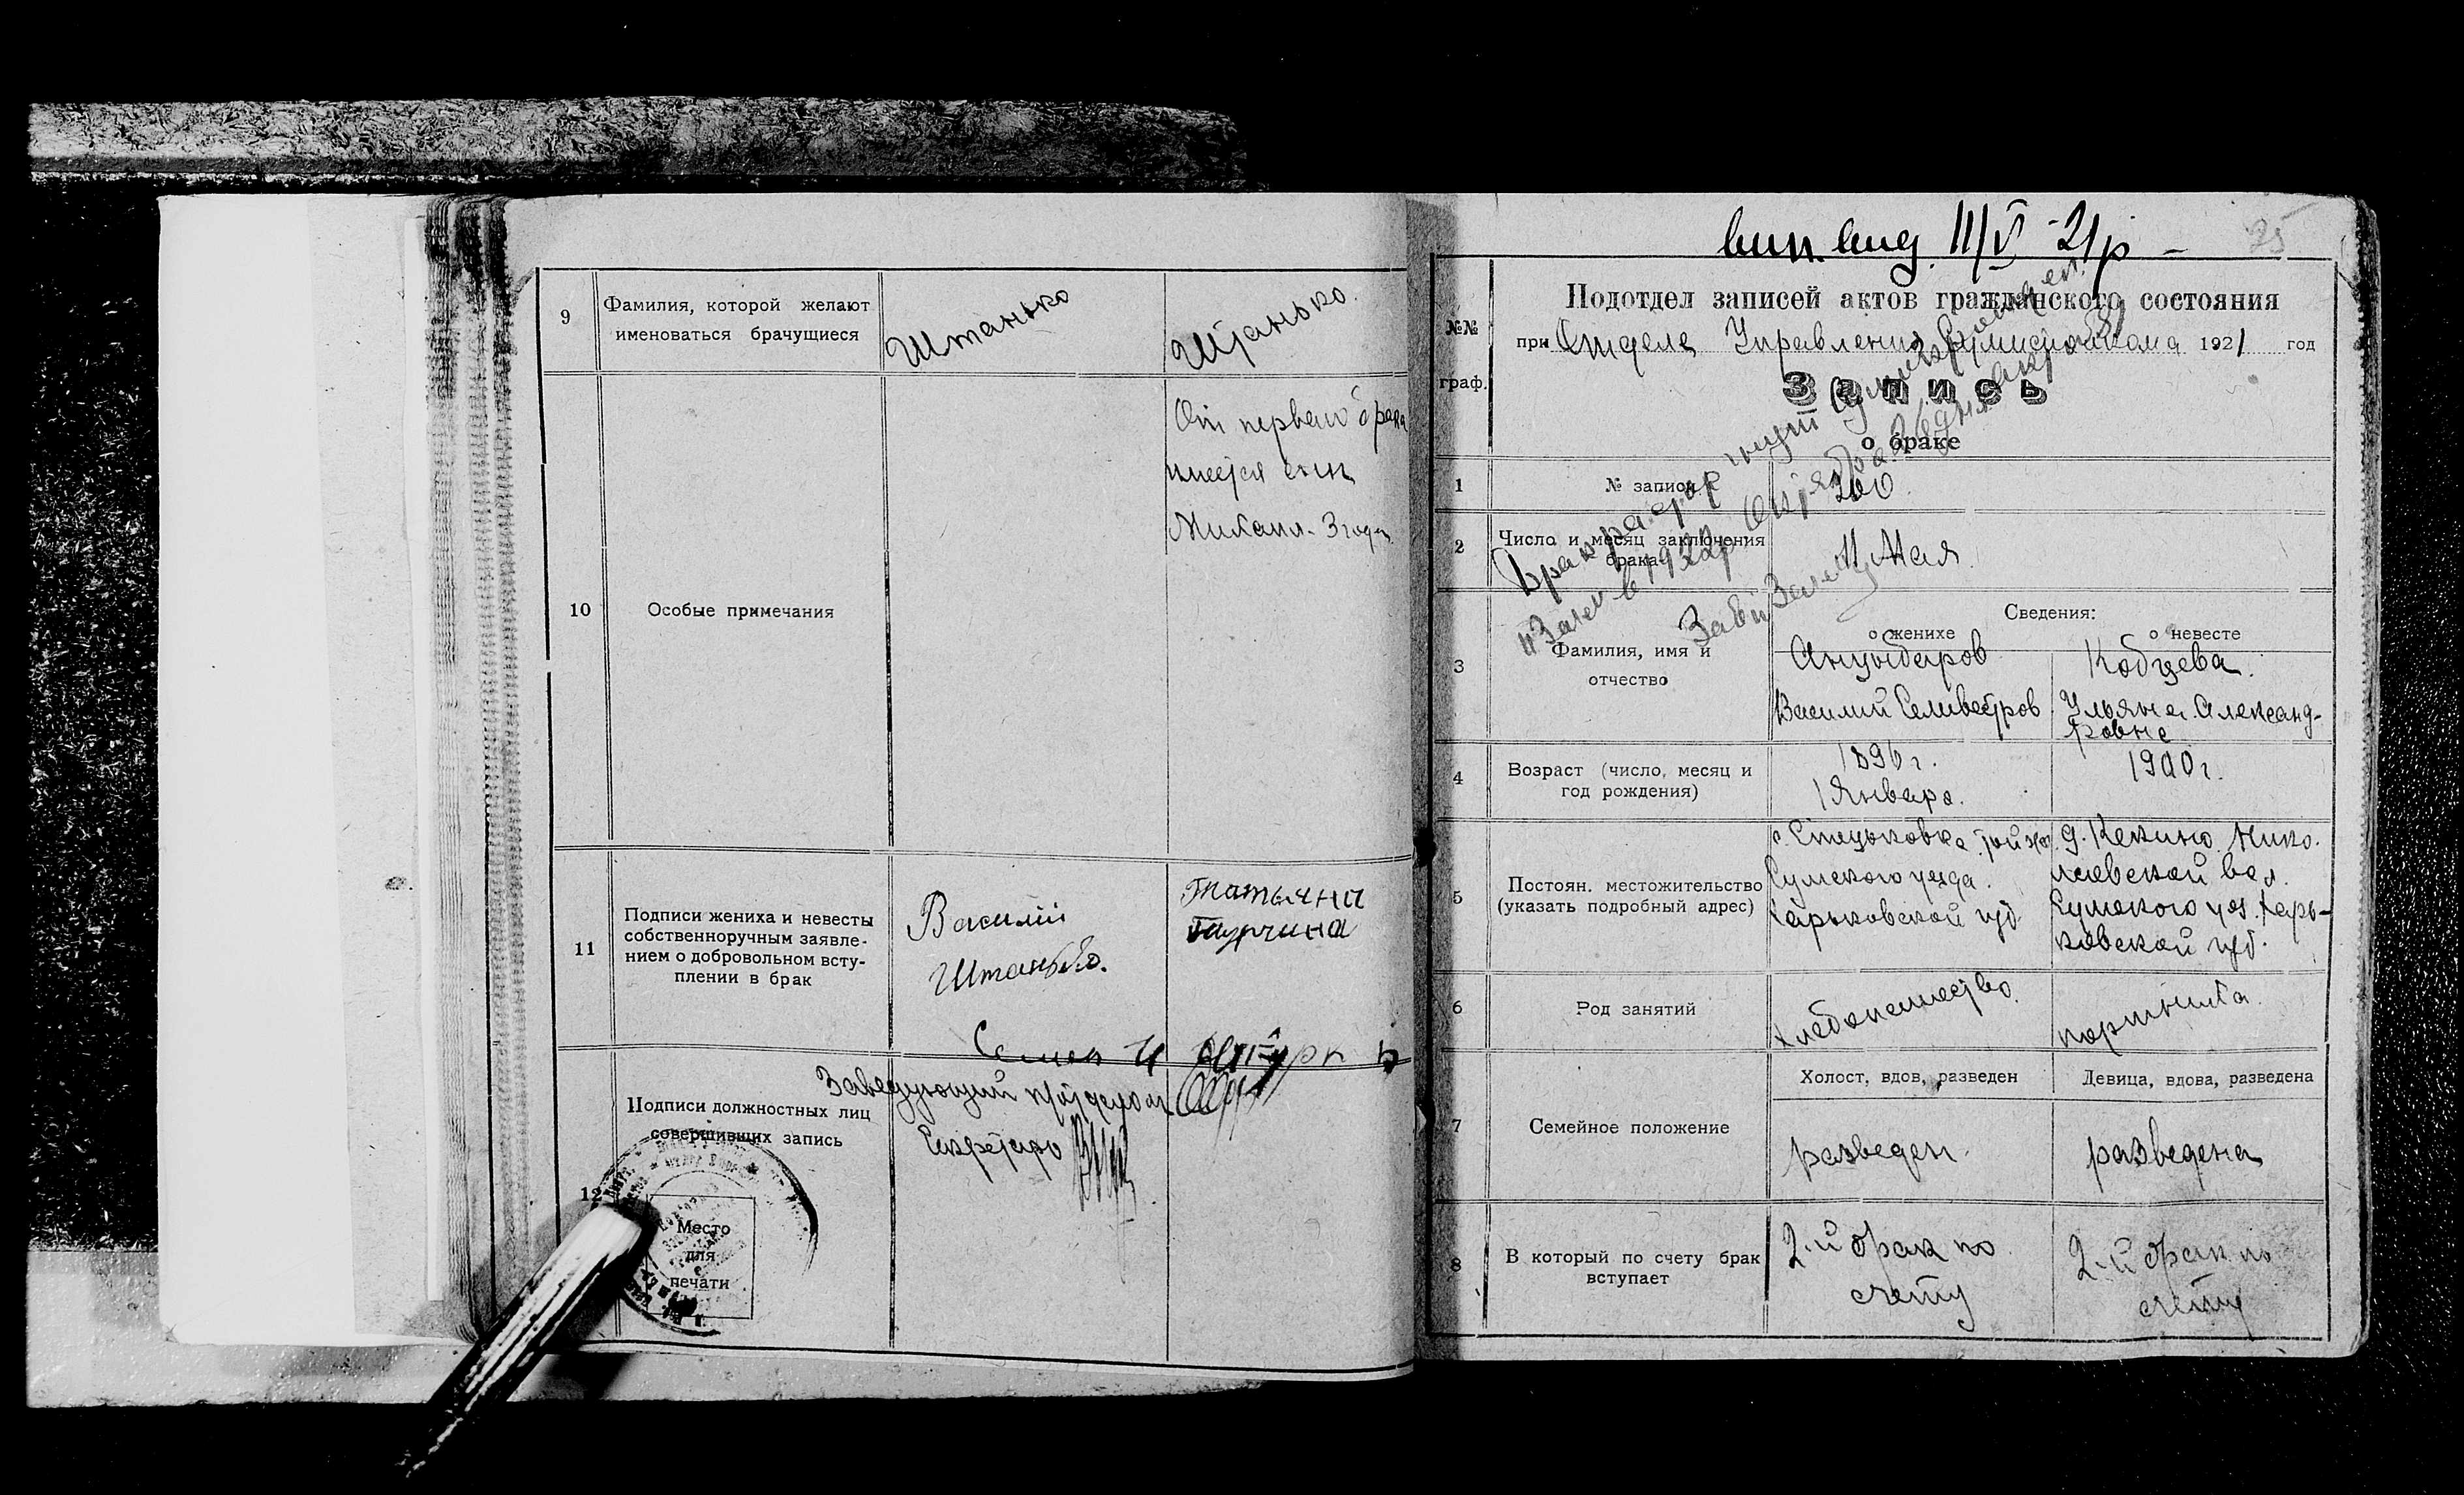 9
Фамилия, которой желают
именоваться брачущиеся
Штанько
Штанько.
10
Особые примечания
От первого брака
имеется сын
Михаил - 3 года
11
Подписи жениха и невесты
собственноручным заявле-
нием о добровольном всту-
плении в брак
Василий
Штанько.
Татьяна
12
Подписи должностных лиц
совершивших запись
Заведующий п/отделом
Секретарь
Место
для
печати
вид. 11/V 21 р -
25
№№
граф.
Подотдел записей актов гражданского состояния
при Отделе Управления 1921 год
Запись
о браке
Брак расторгнут
1922 р.
1
№ записи
200
2
Число и месяц заключения
брака
11 Мая
3
Фамилия, имя и
отчество
Сведения:
о женихе
о невесте
Анцыбаров
Василий Селивестров.
Кобцева.
Ульяна Александ-
ровна
4
Возраст (число, месяц и
год рождения)
1896 г.
1 Января.
1900 г.
5
Постоян. местожительство
(указать подробный адрес)
с. Стецьковка той же
Сумского уезда.
Харьковской губ.
д. Кекино Нико-
лаевской вол.
Сумского уез. Харь-
ковской губ.
6
Род занятий
Хлебопашество.
портниха.
7
Семейное положение
Холост, вдов, разведен
Девица, вдова, разведена
разведен.
разведена
8
В который по счету брак
вступает
2-й брак по
счету
2-й брак по
счету